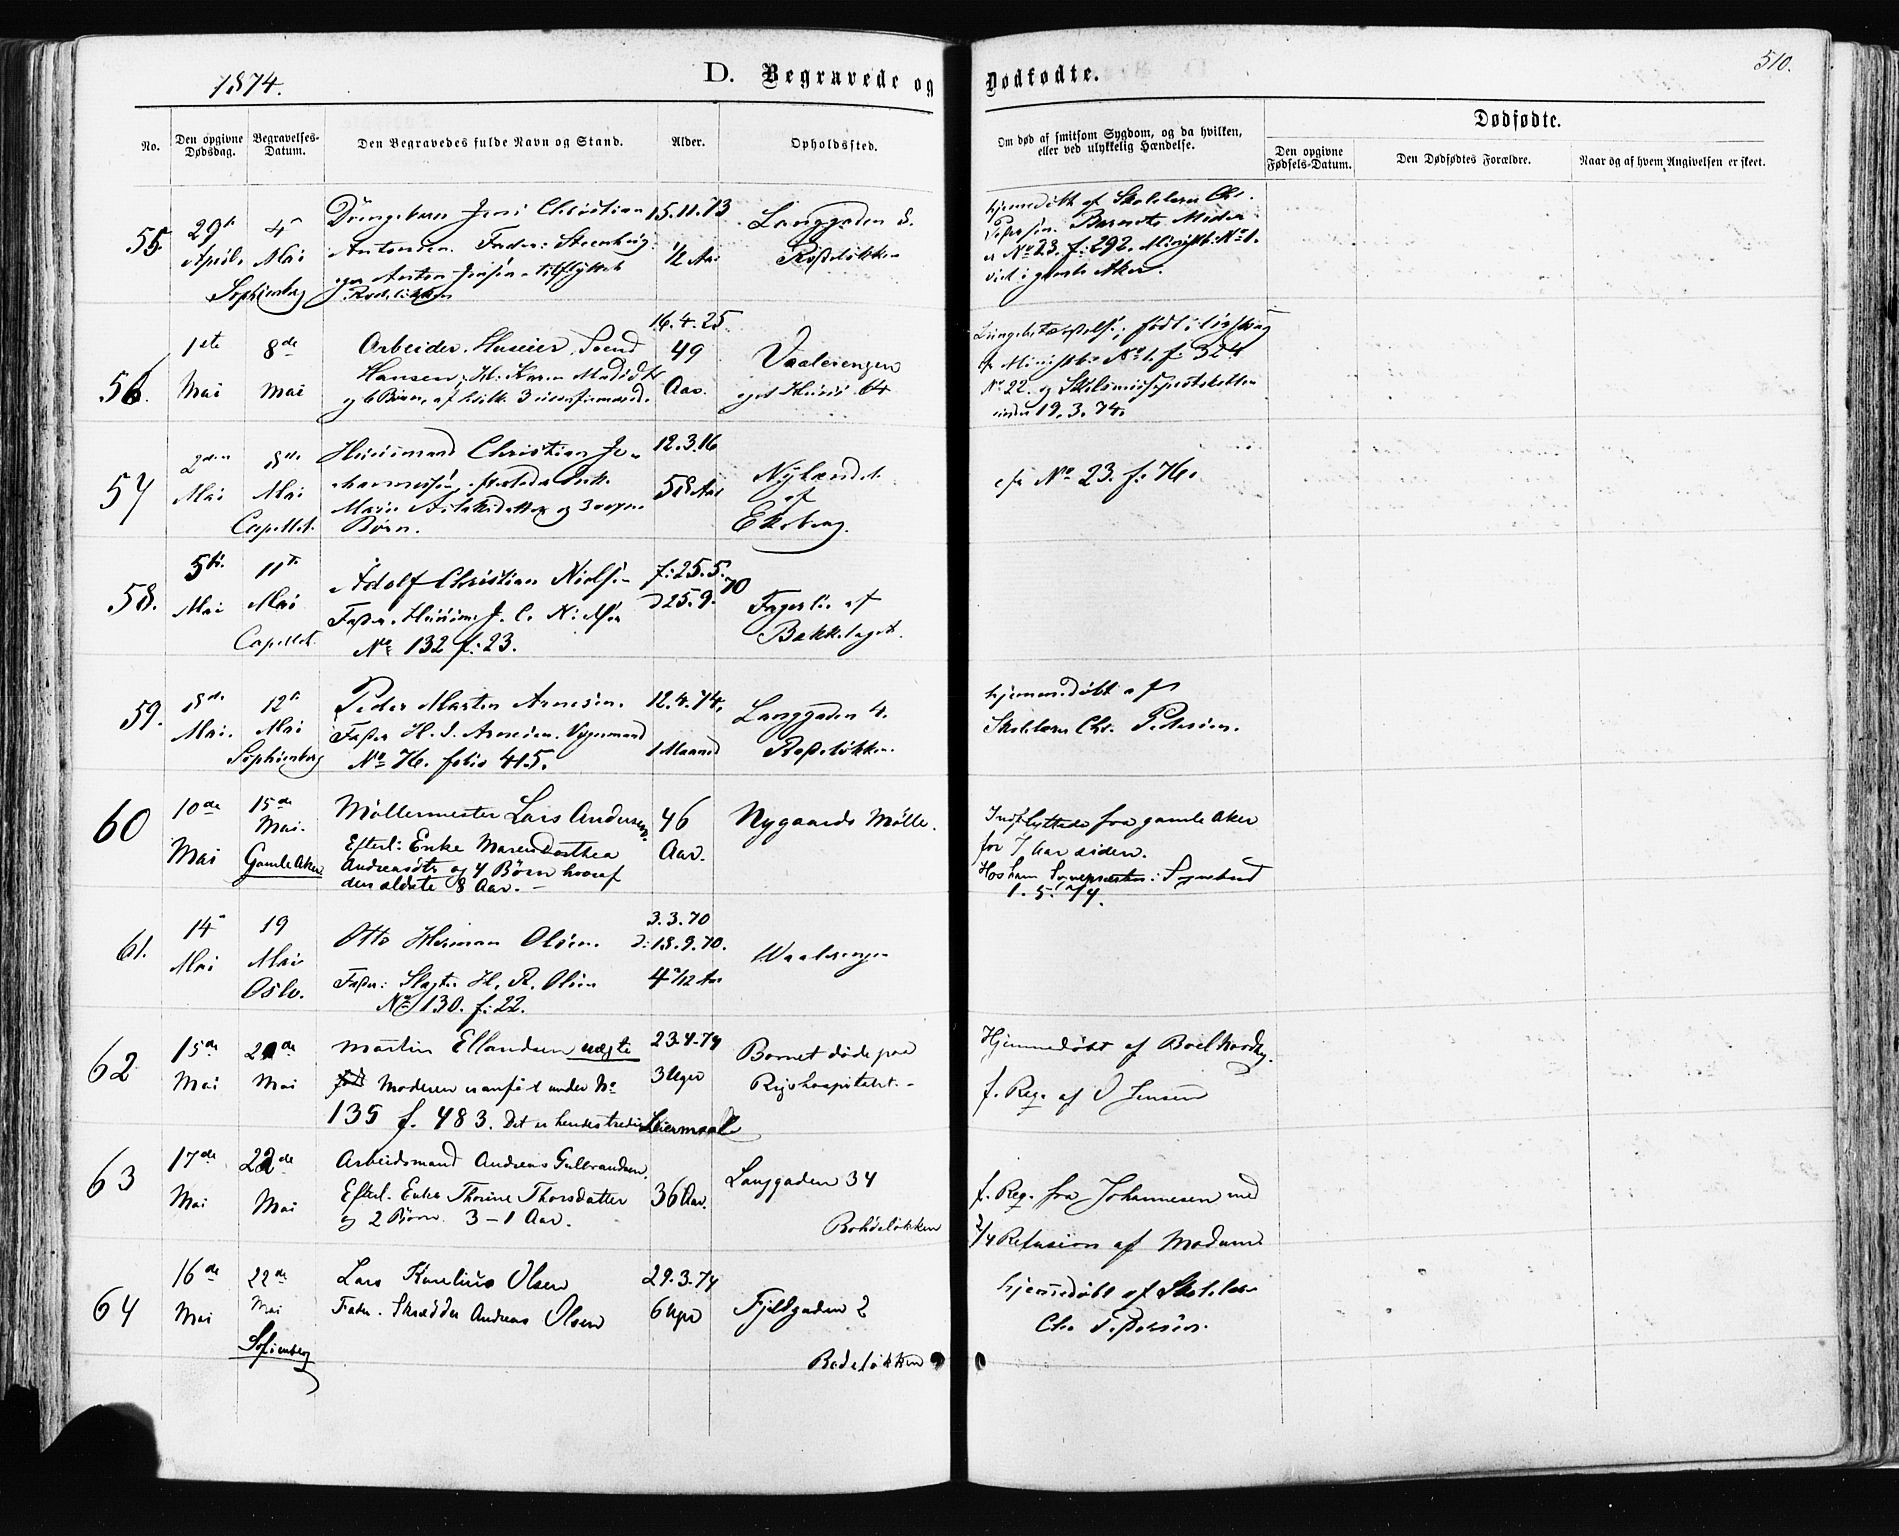 1874.
D. Begravede og Dødfødte.
510.
No.
Den opgivne Dødsdag.
Begravelses-Datum.
Den Begravedes fulde Navn og Stand.
Alder.
Opholdssted.
Om død af smitsom Sygdom, og da hvilken,
eller ved ulykkelig Hændelse.
Dødfødte.
Den opgivne Fødsels-Datum.
Den Dødfødtes Forældre.
Naar og af hvem Angivelsen er skeet.
55
29de April
4de Mai
Sophienberg
Drengebarn Jens Christian
Antonsen. Fader: Steenhug-
ger Anton Jensen tilflyttet
Rodeløkken
15.11.73
1/2 Aar
Langgaden 8.
Rodeløkken
hjemmedøbt af Skolelærer Chr.
Petersen. Barnets Moder
er No 23. f: 292. Ministb: No 1.
vied i gamle Aker.
56.
1ste Mai
8de Mai
Arbeider, Huseier, Svend
Hansen,
og 6 Børn, af hvilke 3 uconfirmerede.
16.4.25.
49 Aar.
Vaalerengen
eget Huus 64
født i
No 1. f. 324
No 22. og
under 19.3.74.
57
2den Mai
8de Mai
Capellet.
Huusmand Christian Jo-
hannesen,
Marie Aslaksdatter og 3 voxne
Børn.
12.3.16
58 Aar
Nylændet
af
Ekeberg.
cfr No 23. f: 76.
58.
5te Mai
11te Mai
Capellet.
Adolf Christian Niels.
Fader. Huusm. J. C. Nielsen
No 132 f: 23.
f: 25.5.70
D 25.9.
Fagerlie af
Bækkelaget.
59.
8de Mai.
12te Mai
Sophienberg
Peder Martin Arnesen.
Fader H. J. Arnesen. Vognmand
No 76. folio 415.
12.4.74.
1 Maaned
Langgaden 4.
Rodeløkken.
hjemmedøbt af
Skolelærer Chr. Petersen.
60
10de Mai
15de Mai.
Gamle Aker
Møllermester Lars Andersen.
Efterl: Enke Maren Dorthea
Andreasdtr og 4 Børn hvoraf
den ældste 8 Aar. –
46 Aar.
Nygaards Mølle.
Indflyttede fra gamle Aker
for 7 Aar siden.
Hos ham Sognepræsten i Sognebud
1.5.74.
61.
14 Mai
19 Mai
Oslo.
Otto Herman Olsen.
Fader: Slagter H. R. Olsen
No 130. f: 22.
3.3.70
D: 18.9.70.
4 2/12 Aar
Waalerengen
62
15de Mai
21de Mai
Martin Ellandsen uægte
Moderen er anført under No
135 f. 483. Det er hendes tredie Leiermaal
23.4.74
3 Uger
Barnet døde paa
Rigshospitalet. –
Hjemmedøbt af
f. Reg. af O Jensen
63
17de Mai
22de Mai
Arbeidsmand Andreas Gulbrandsen.
Efterl. Enke Thorine Thorsdatter
og 2 Børn 3 – 1 Aar.
36 Aar.
Langgaden 34
Rohdeløkken
f. Reg. fra Johannesen med
2/4 Refusion af Modum
64
16de Mai
22de Mai
Sofienberg
Lars Karelius Olsen
Fader. Skrædder Andreas Olsen
29.3.74
6 Uger
Fjeldgaden 2
Rodeløkken
hjemmedøbt af Skolelær
Chr Petersen.